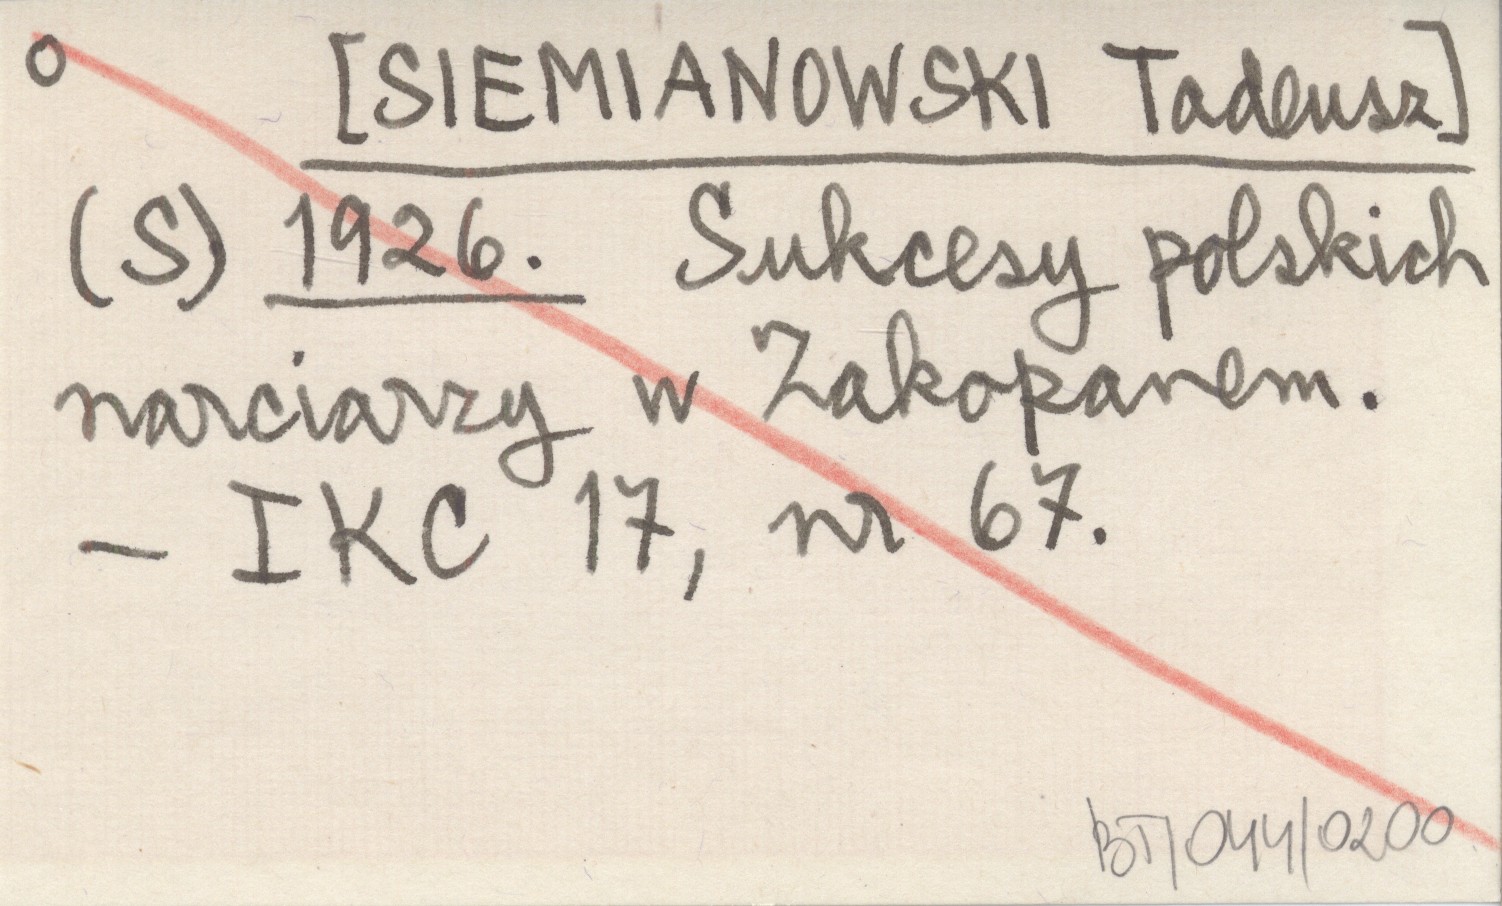 o [SIEMIANOWSKI Tadeusz]
(S) 1926. Sukcesy polskich
narciarzy w Zakopanem.
– IKC 17, nr 67.
BT/044/0200